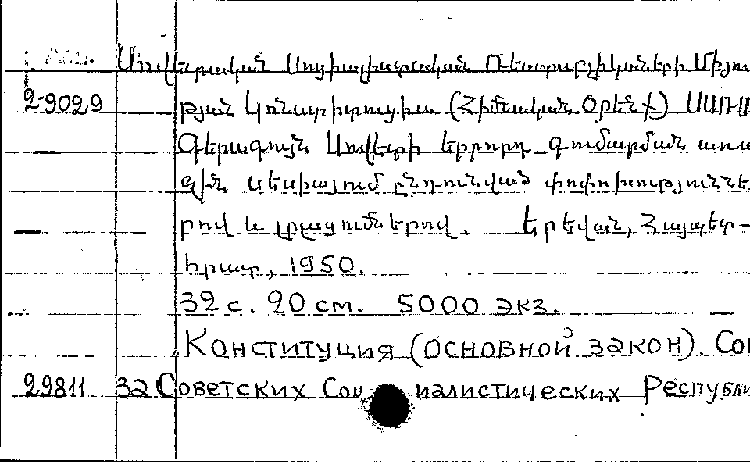 Սովետական Սոցիալիստական Ռեսպուբլիկաների Միու
29029 թյան Կոնստիտուցիա (Հիմնական Օրենք) ՍՍՌՄ
Գերագույն Սովետի երրորդ գումարման առա
ջին սեսիայում ընդունված փոփոխություննե
րով և լրացումներով. Երևան, Հայպետ-
հրատ, 1950.
32 с. 20 см. 5000 экз.
Конституция (основной закон) Сою
29811 за Советских Социалистических Республи